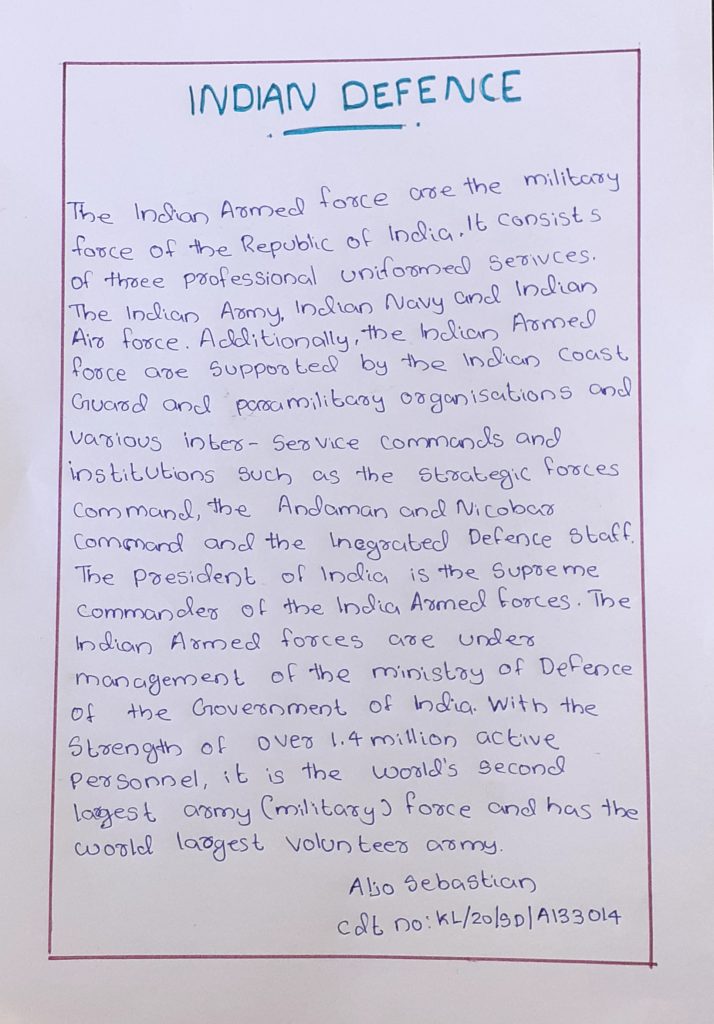 INDIAN DEFENCE
The Indian Armed force are the military
force of the Republic of India. It consists
of three professional uniformed serivces.
The Indian Army, Indian Navy and Indian
Air force. Additionally, the Indian Armed
force are supported by the Indian coast
Guard and paramilitary organisations and
various inter- service commands and
institutions such as the strategic forces
command, the Andaman and Nicobar
command and the Inegrated Defence staff.
The president of India is the supreme
commander of the India Armed forces. The
Indian Armed forces are under
management of the ministry of Defence
of the Government of India. With the
strength of over 1.4 million active
personnel, it is the world's second
largest army (military) force and has the
world largest volunteer army.
Aljo Sebastian
cdt no: KL/20/SD/A133014